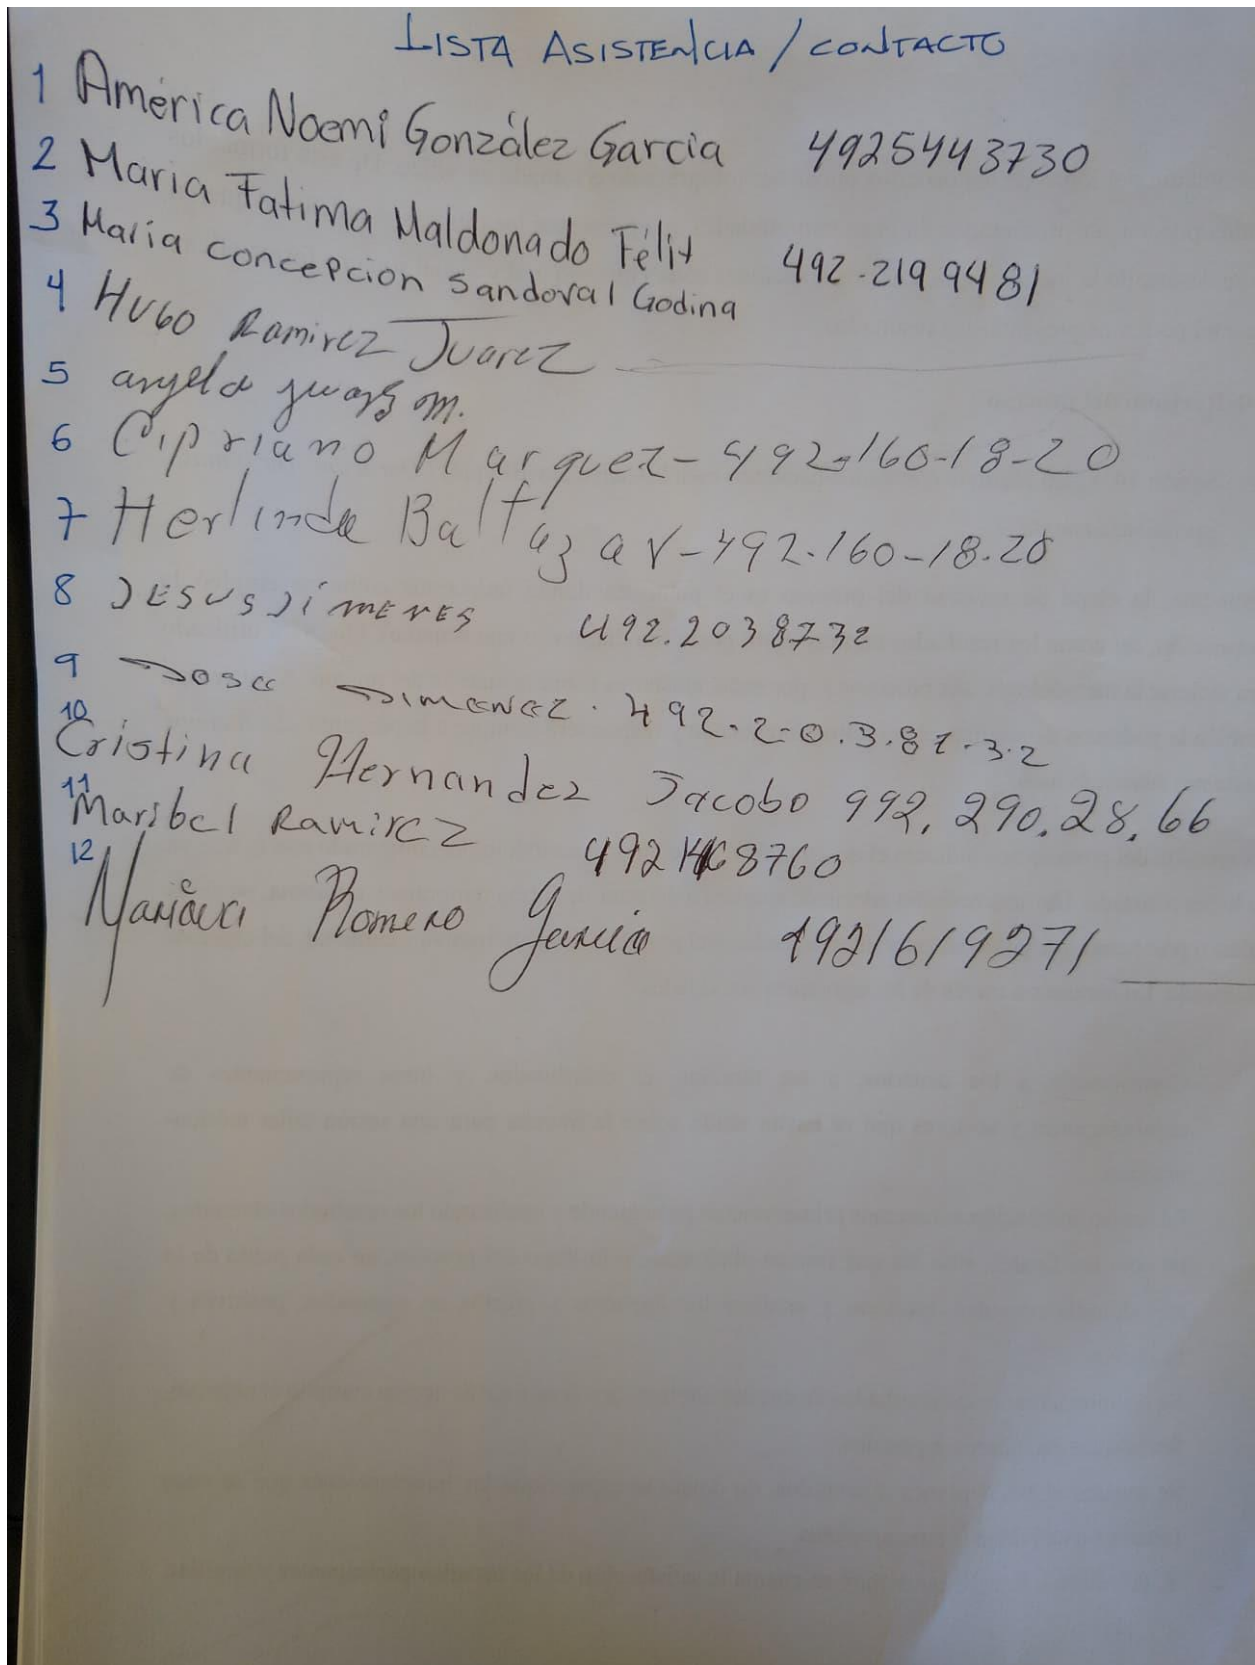 LISTA ASISTENCIA / CONTACTO
1 América Noemi González Garcia 4925443730
2 Maria Fatima Maldonado Félix
3 Maria concepcion Sandoval Godina 492-219 9481
4 HUGO Ramirez Juarez
5 angela juarez m.
6 Cipriano Marquez-492-160-18-20
7 Herlinda Baltazar-492-160-18-20
8 JESUS JíMENES 492.2038732
9 Jose Jimenez. 492-2-0.3.87-3-2
10 Cristina Hernandez Jacobo 992, 290, 28, 66
11 Maribel Ramirez 492 8760
12 Mariana Romero Garcia 4921619271